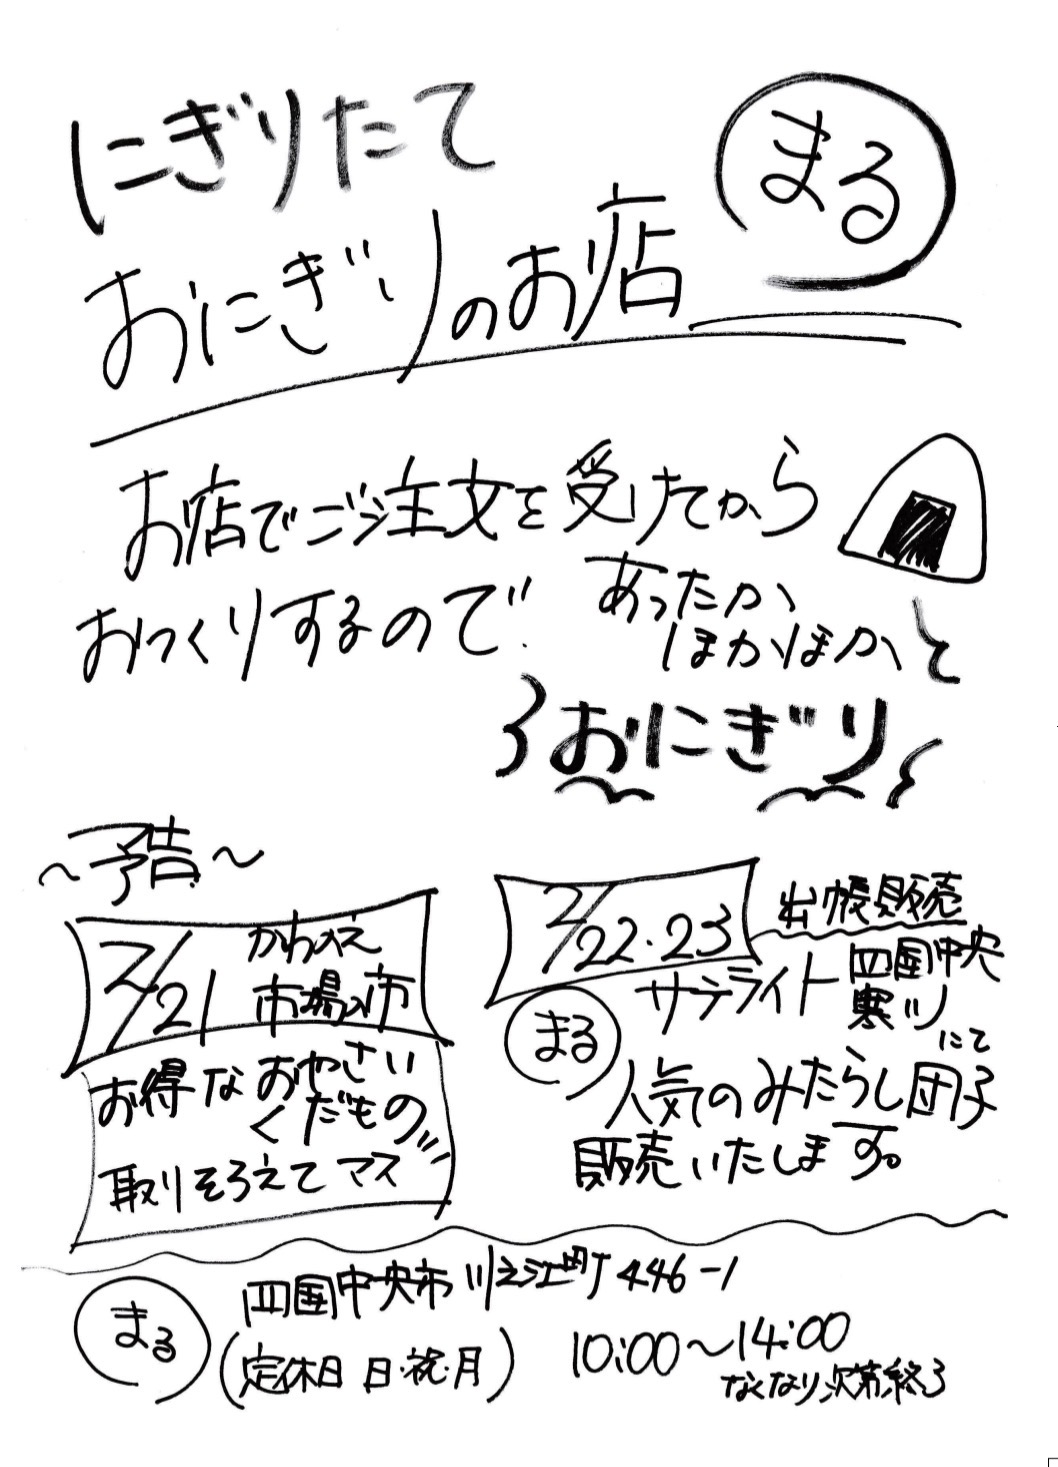 にぎりたて
まる
おにぎりのお店
お店でご注文を受けてから
おつくりするので
あったか
ほかほかと
おにぎり
～予告～
2/21 かわのえ
市場の市
お得な おやさい
くだもの
取りそろえてマス
2/22・23 出帳販売
サテライト 四国中央
寒川
にて
まる
人気のみたらし団子
販売いたします。
まる
四国中央市川之江町446-1
(定休日 日・祝・月)
10:00～14:00
なくなり次第終了